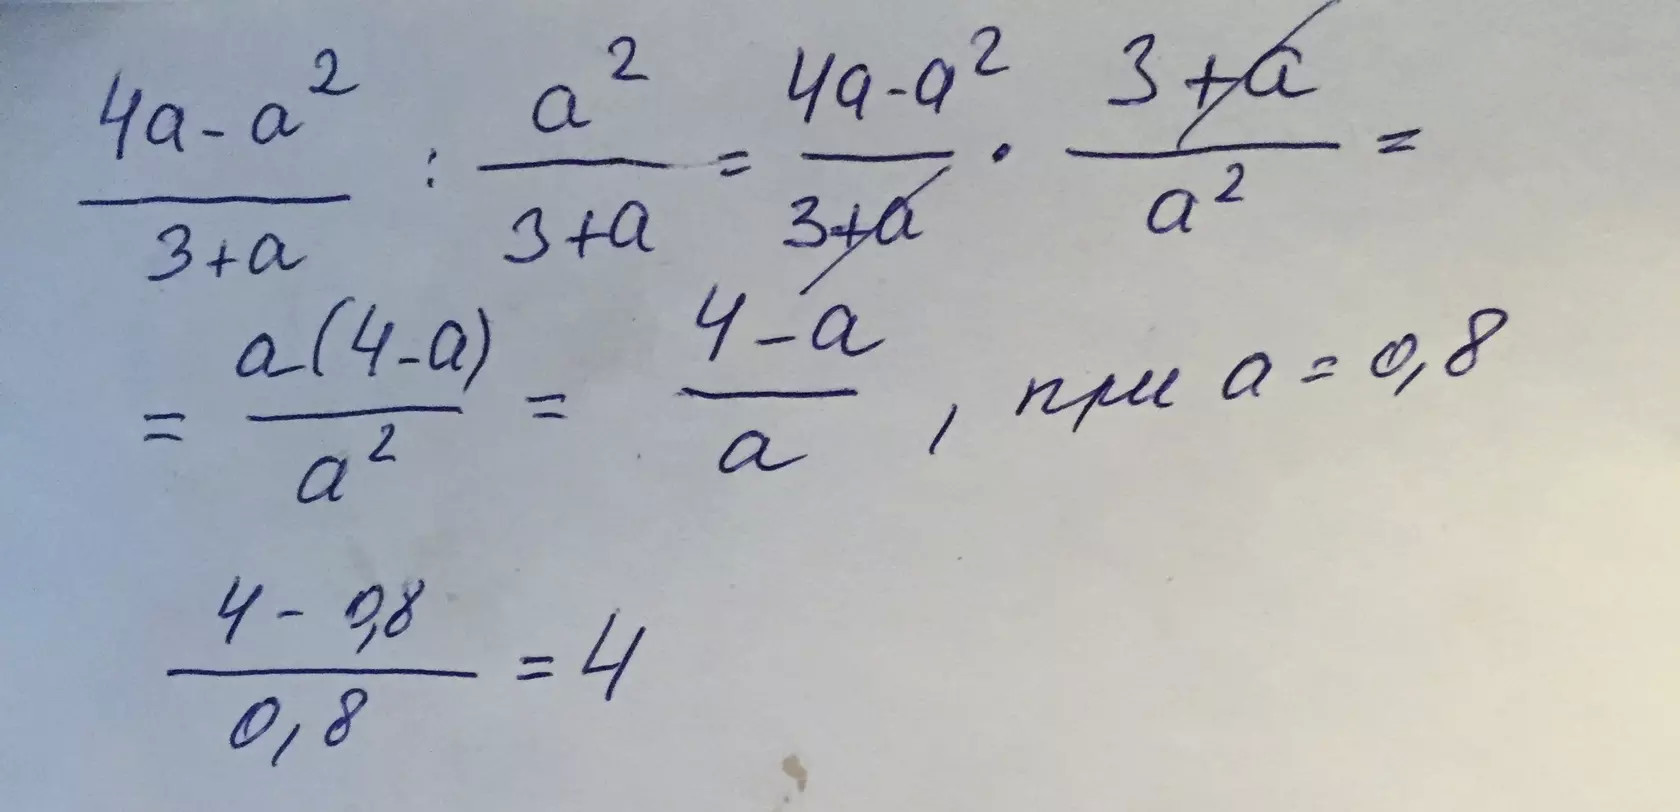 (4a-a²)/(3+a) : a²/(3+a) = (4a-a²)/(3+a) · (3+a)/a² =
= a(4-a)/a² = (4-a)/a , при a = 0,8
(4-0,8)/0,8 = 4